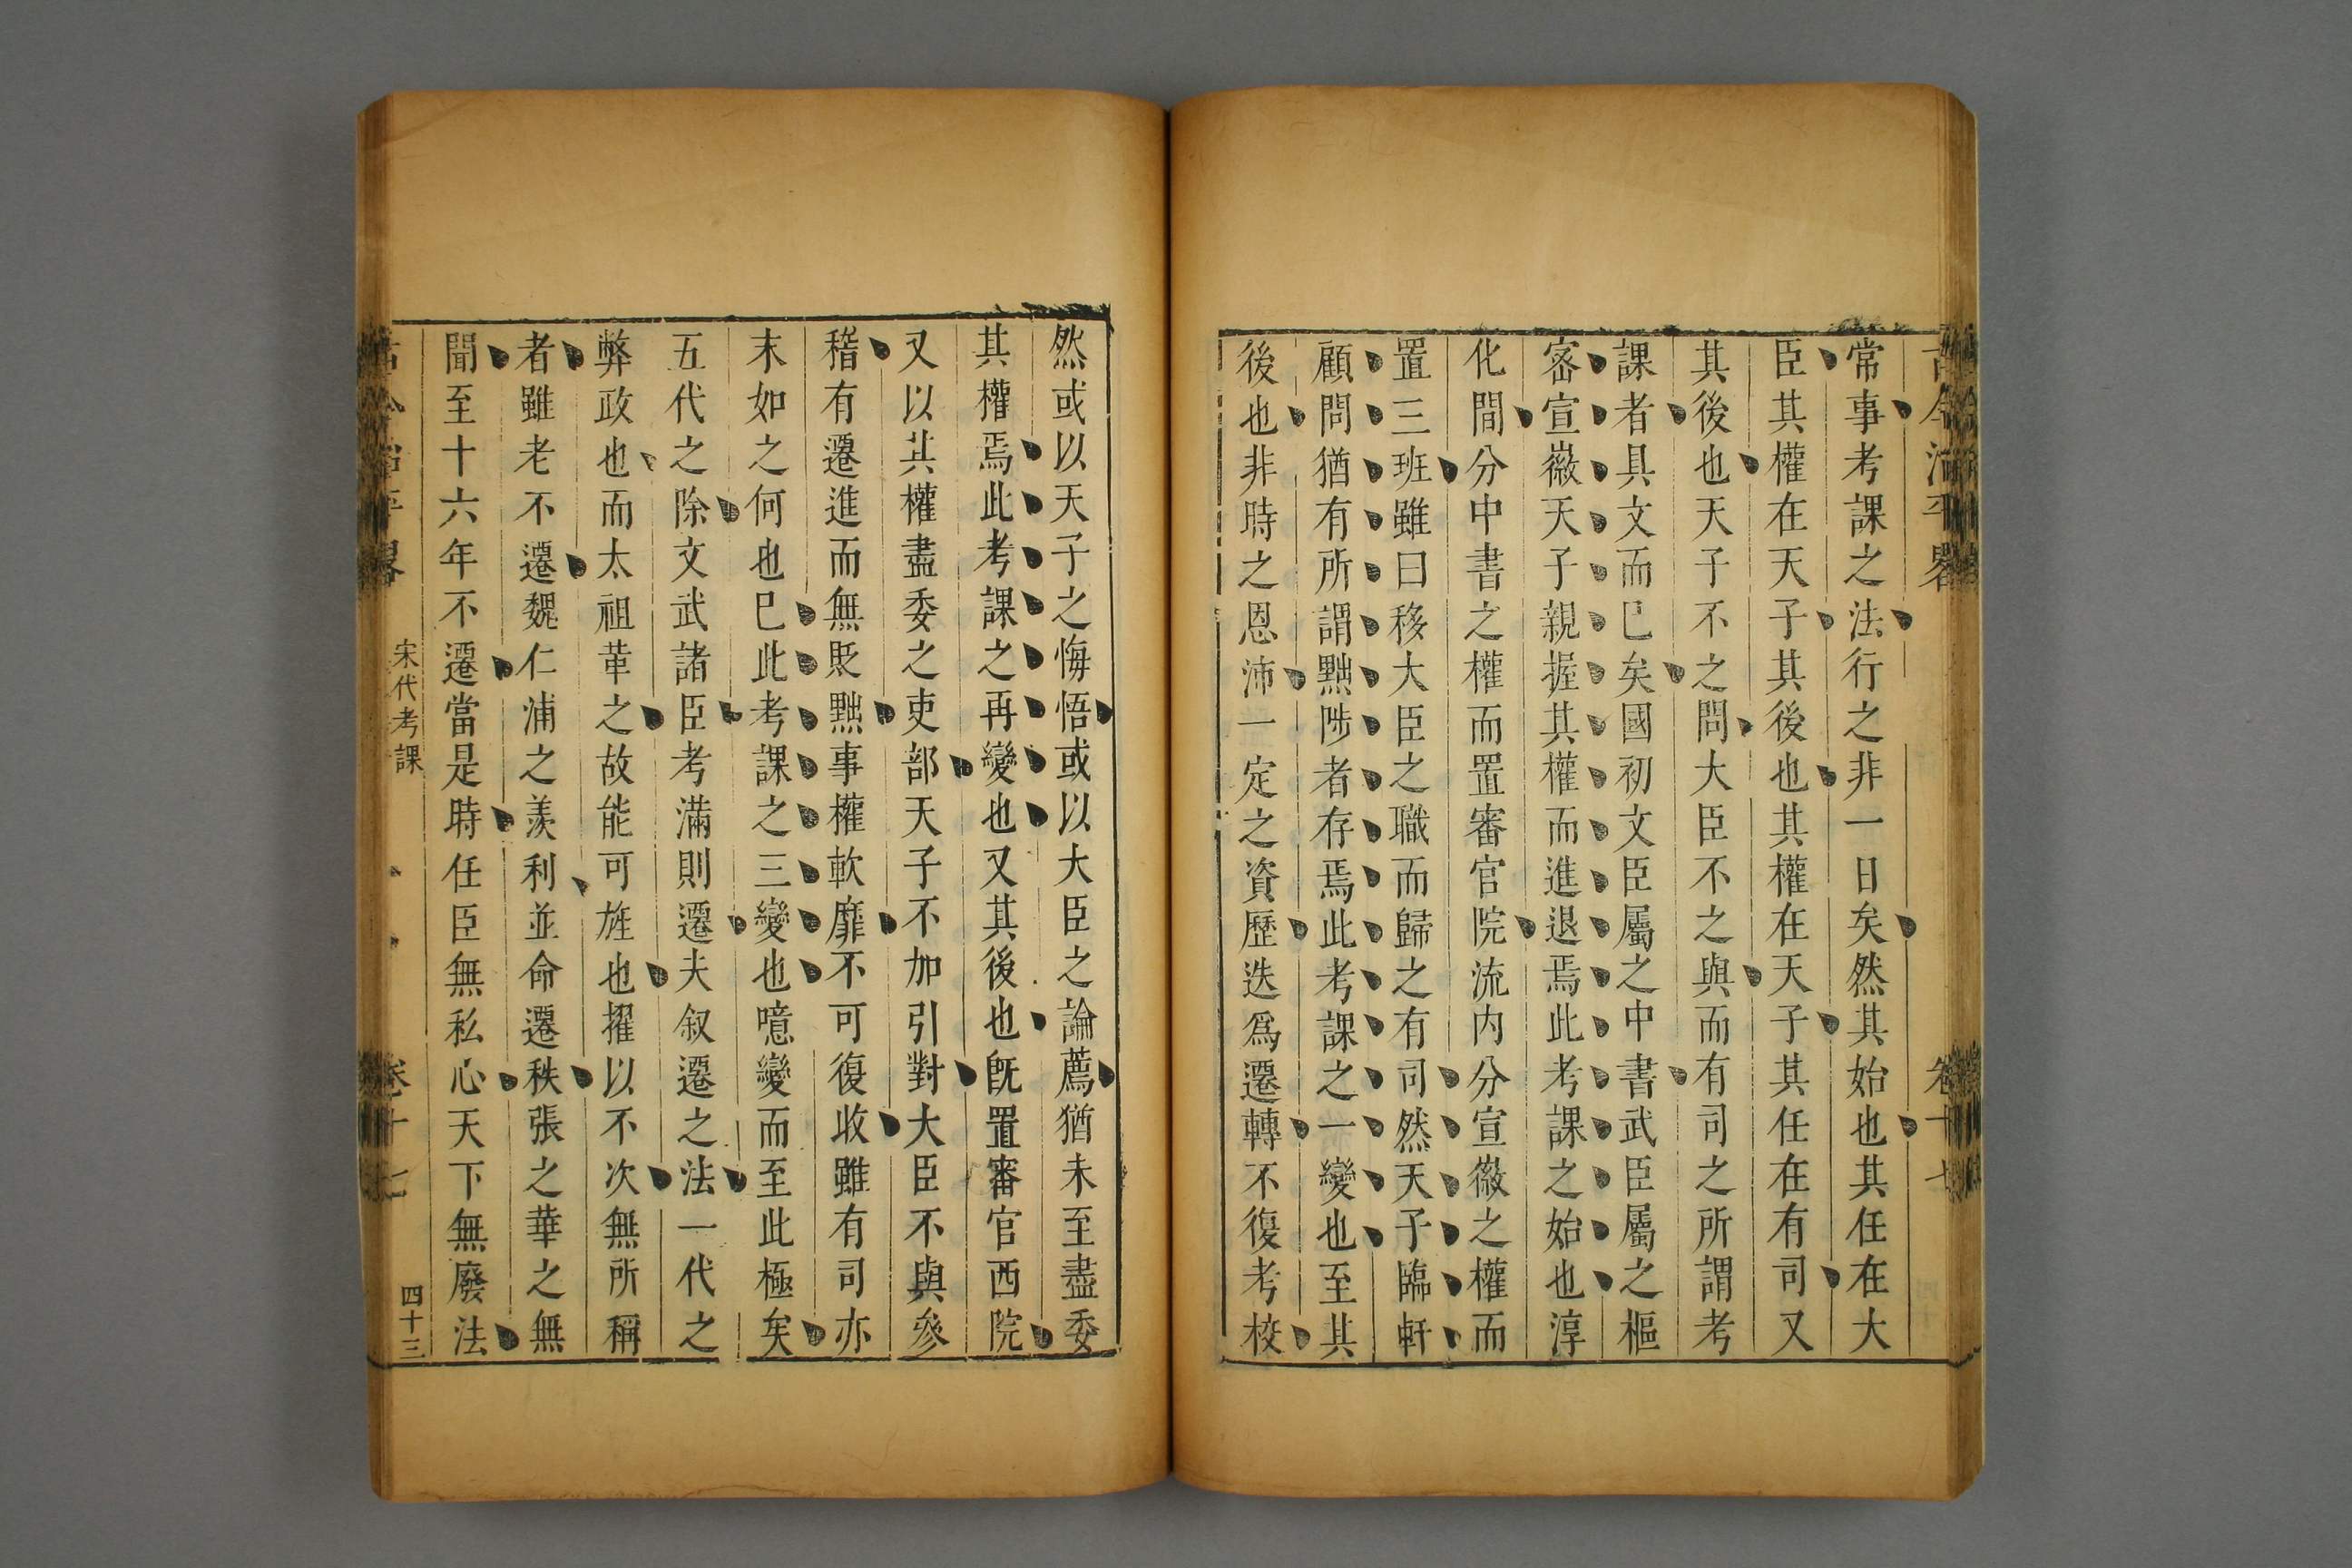 古今治平畧
卷十七
常事考課之法行之非一日矣然其始也其任在大
臣其權在天子其後也其權在天子其任在有司又
其後也天子不之問大臣不之與而有司之所謂考
課者具文而已矣國初文臣屬之中書武臣屬之樞
密宣徽天子親握其權而進退焉此考課之始也淳
化間分中書之權而置審官院流内分宣徽之權而
置三班雖曰移大臣之職而歸之有司然天子臨軒
顧問猶有所謂黜陟者存焉此考課之一變也至其
後也非時之恩沛一定之資歷迭爲遷轉不復考校
然或以天子之悔悟或以大臣之論薦猶未至盡委
其權焉此考課之再變也又其後也旣置審官西院
又以其權盡委之吏部天子不加引對大臣不與叅
稽有遷進而無貶黜事權軟靡不可復收雖有司亦
末如之何也巳此考課之三變也噫變而至此極矣
五代之除文武諸臣考滿則遷夫叙遷之法一代之
弊政也而太祖革之故能可旌也擢以不次無所稱
者雖老不遷魏仁浦之羨利並命遷秩張之華之無
聞至十六年不遷當是時任臣無私心天下無廢法
古今治平畧
宋代考課
卷十七
四十三